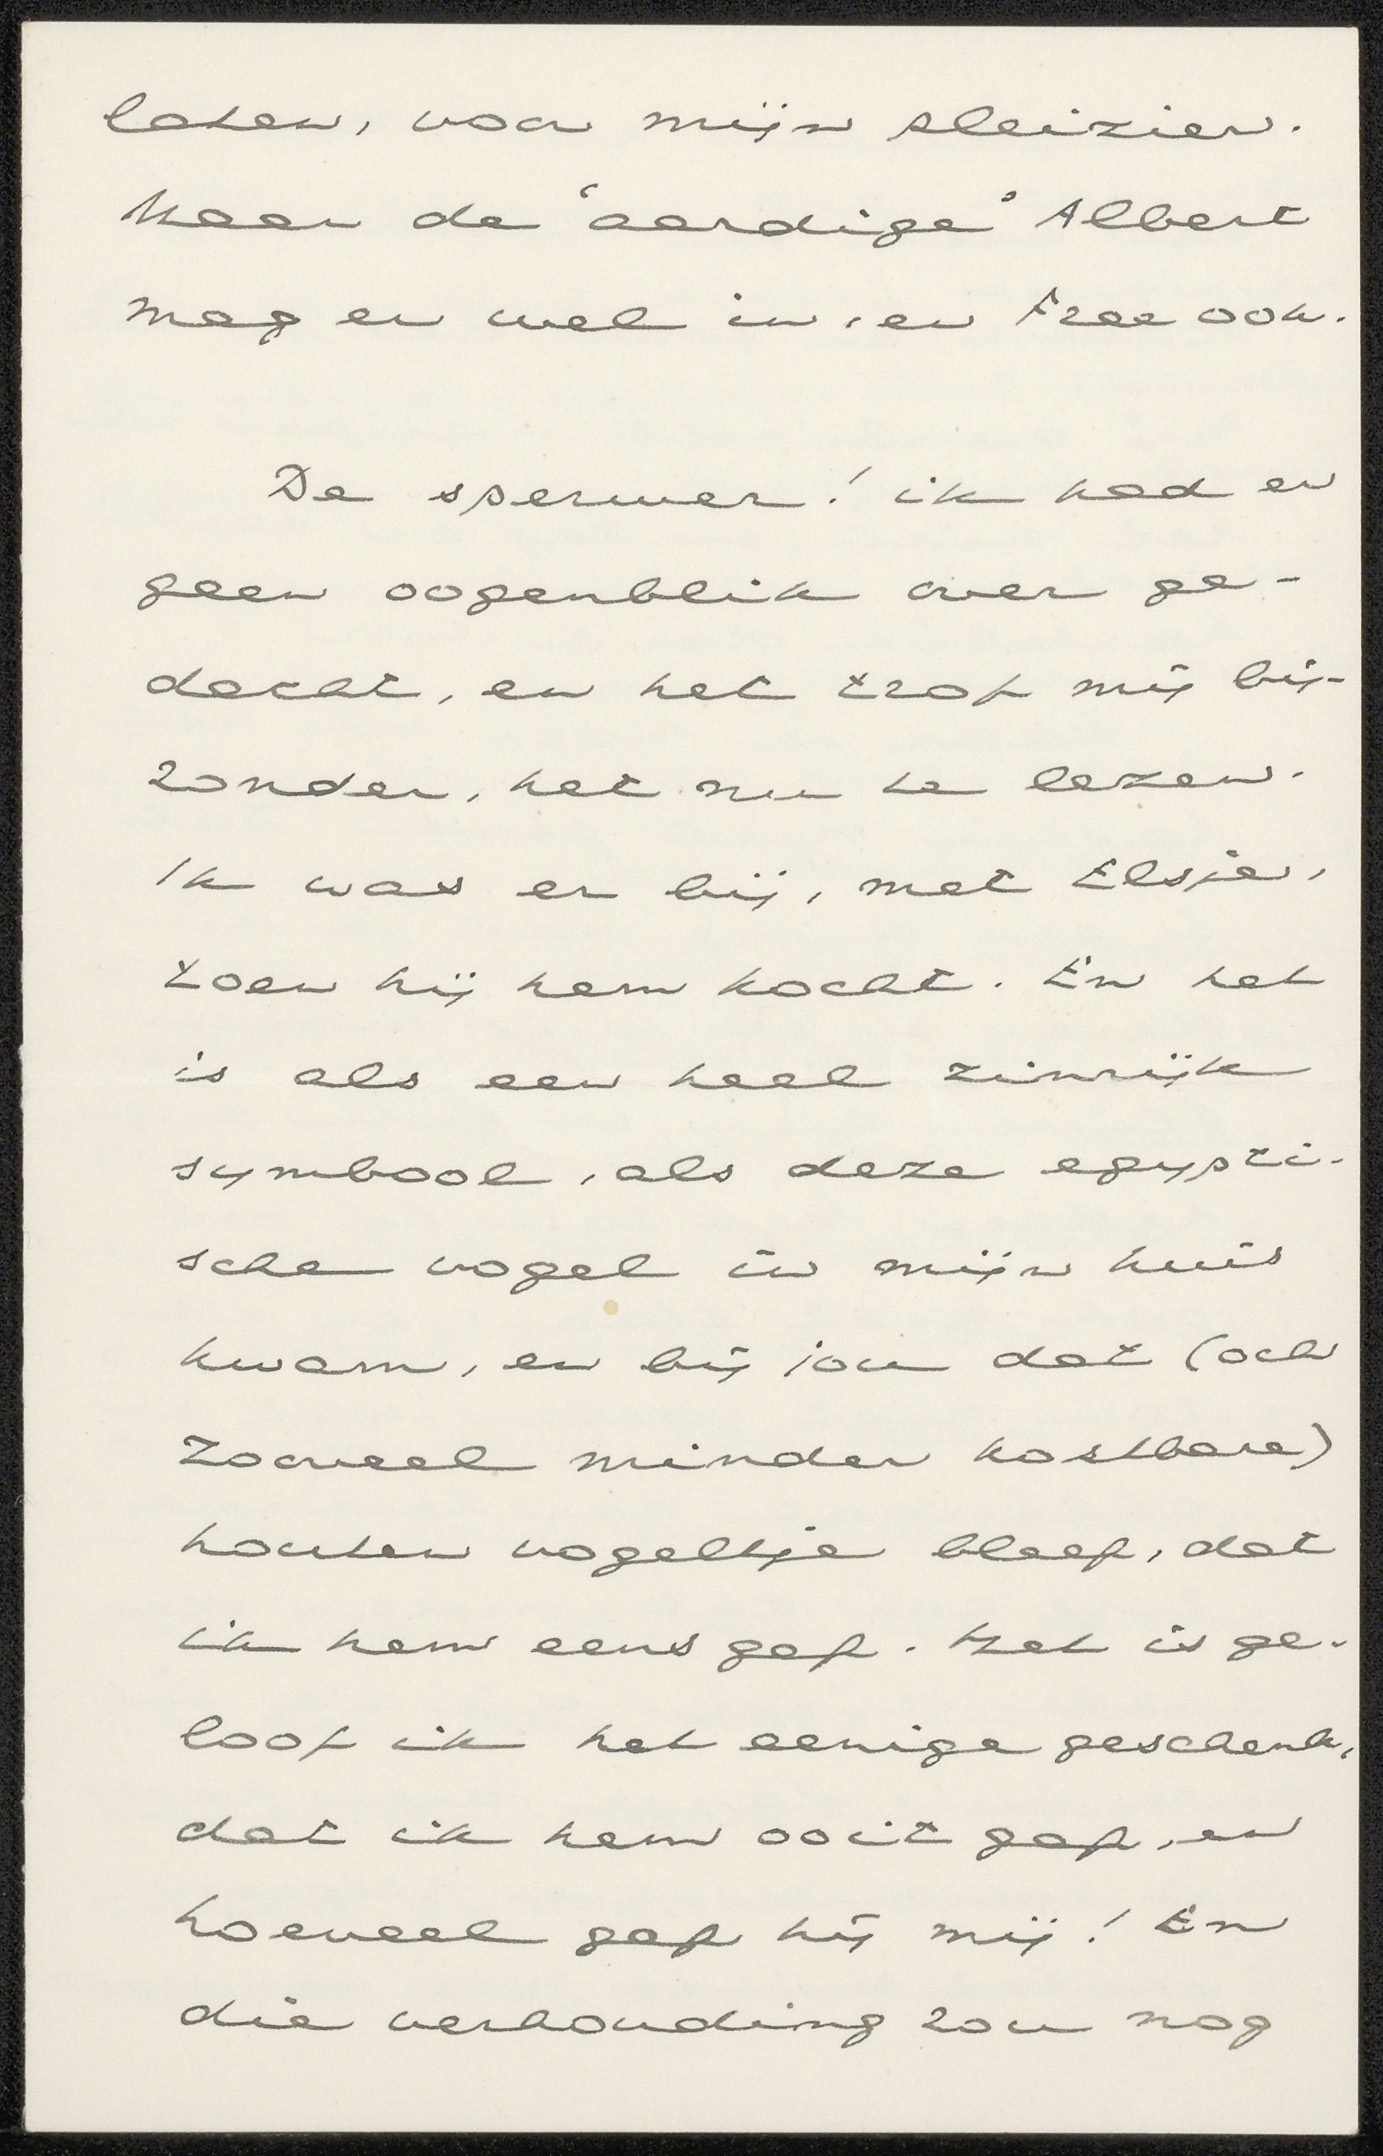 laten, voor mijn pleizier.
Maar de 'aardige' Albert
mag er wel in, en Free ook.
De sperwer! ik had er
geen oogenblik over ge-
dacht, en het trof mij bij-
zonder, het nu te lezen.
Ik was er bij, met Elsje,
toen hij hem kocht. En het
is als een heel zinrijk
symbool, als deze egypti-
sche vogel in mijn huis
kwam, en bij jou dat (och
zooveel minder kostbare)
houten vogeltje bleef, dat
ik hem eens gaf. Het is ge-
loof ik het eenige geschenk,
dat ik hem ooit gaf, en
hoeveel gaf hij mij! En
die verhouding zou nog